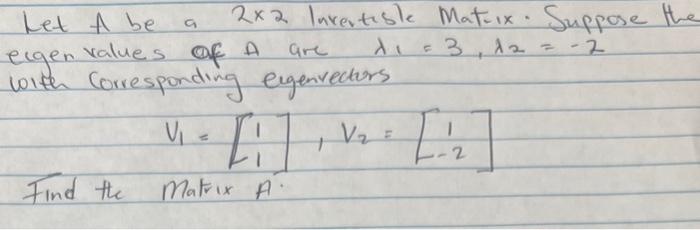 Let A be a 2x2 Invertible Matrix. Suppose the
eigen values of A are λ1 = 3, λ2 = -2
with Corresponding eigenvectors
V1 = [1 1], V2 = [1 -2]
Find the Matrix A.